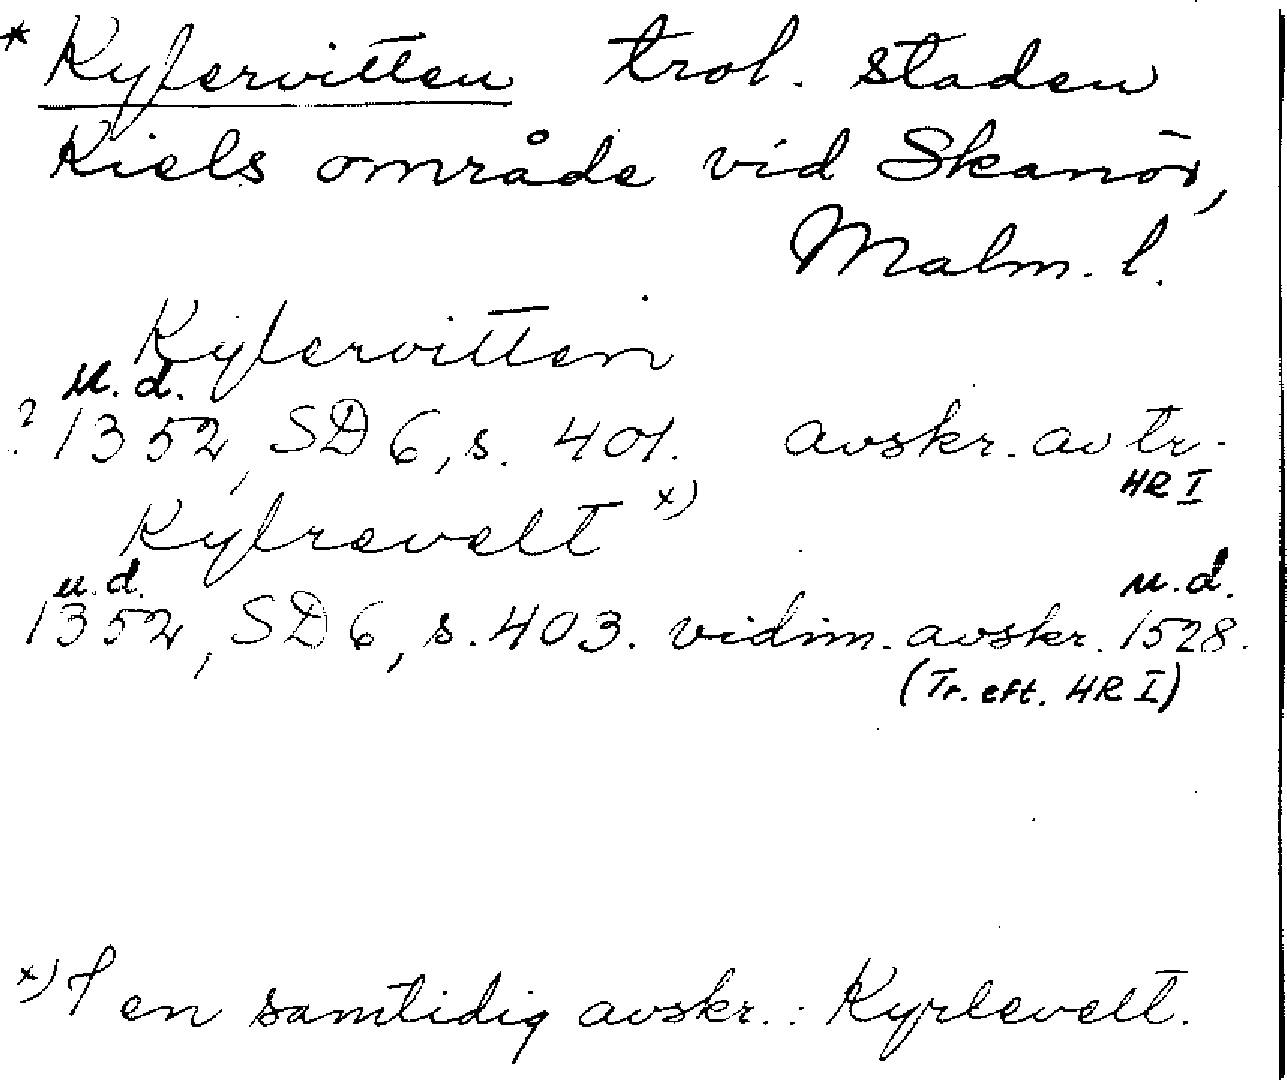 * Kylervitten trol. staden
Kiels område vid Skanör,
Malm. l.
Kylervitten
u. d.
? 1352, SD 6, s. 401. avskr. av tr.
HR I
Kylrevelt x)
u. d. u. d.
1352, SD 6, s. 403. vidim. avskr. 1528.
(Tr. eft. HR I)
x) I en samtidig avskr.: Kyrlevelt.